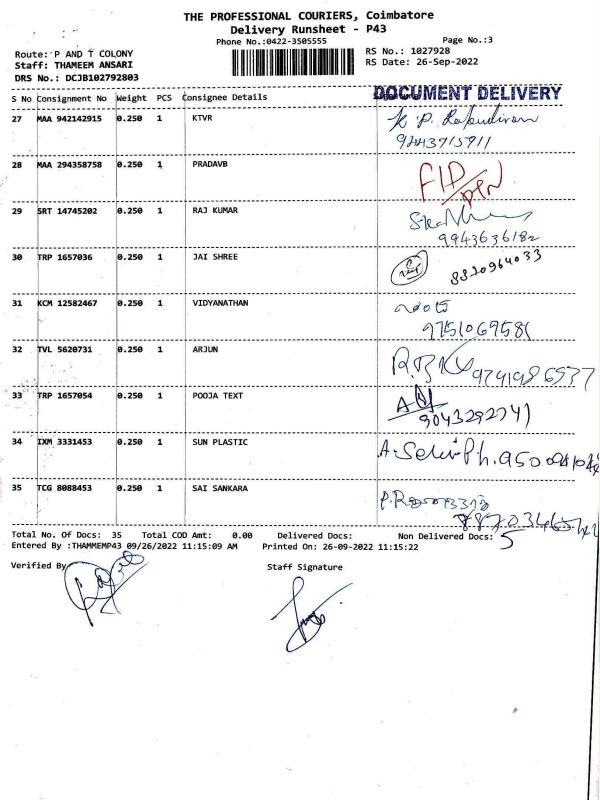 THE PROFESSIONAL COURIERS, Coimbatore
Delivery Runsheet - P43
Phone No.:0422-3505555
Page No.:3
Route: P AND T COLONY
RS No.: 1027928
Staff: THAMEEM ANSARI
RS Date: 26-Sep-2022
DRS No.: DCJB102792803
DOCUMENT DELIVERY
S No Consignment No Weight PCS Consignee Details
27 MAA 942142915 0.250 1 KTVR
9843715911
28 MAA 294358758 0.250 1 PRADAVB
29 SRT 14745202 0.250 1 RAJ KUMAR
9943636182
30 TRP 1657036 0.250 1 JAI SHREE
8870964033
31 KCM 12582467 0.250 1 VIDYANATHAN
9751069581
32 TVL 5620731 0.250 1 ARJUN
33 TRP 1657054 0.250 1 POOJA TEXT
9043292741
34 IXM 3331453 0.250 1 SUN PLASTIC
35 TCG 8088453 0.250 1 SAI SANKARA
Total No. Of Docs: 35 Total COD Amt: 0.00 Delivered Docs: Non Delivered Docs: 5
Entered By :THAMMEMP43 09/26/2022 11:15:09 AM Printed On: 26-09-2022 11:15:22
Verified By
Staff Signature